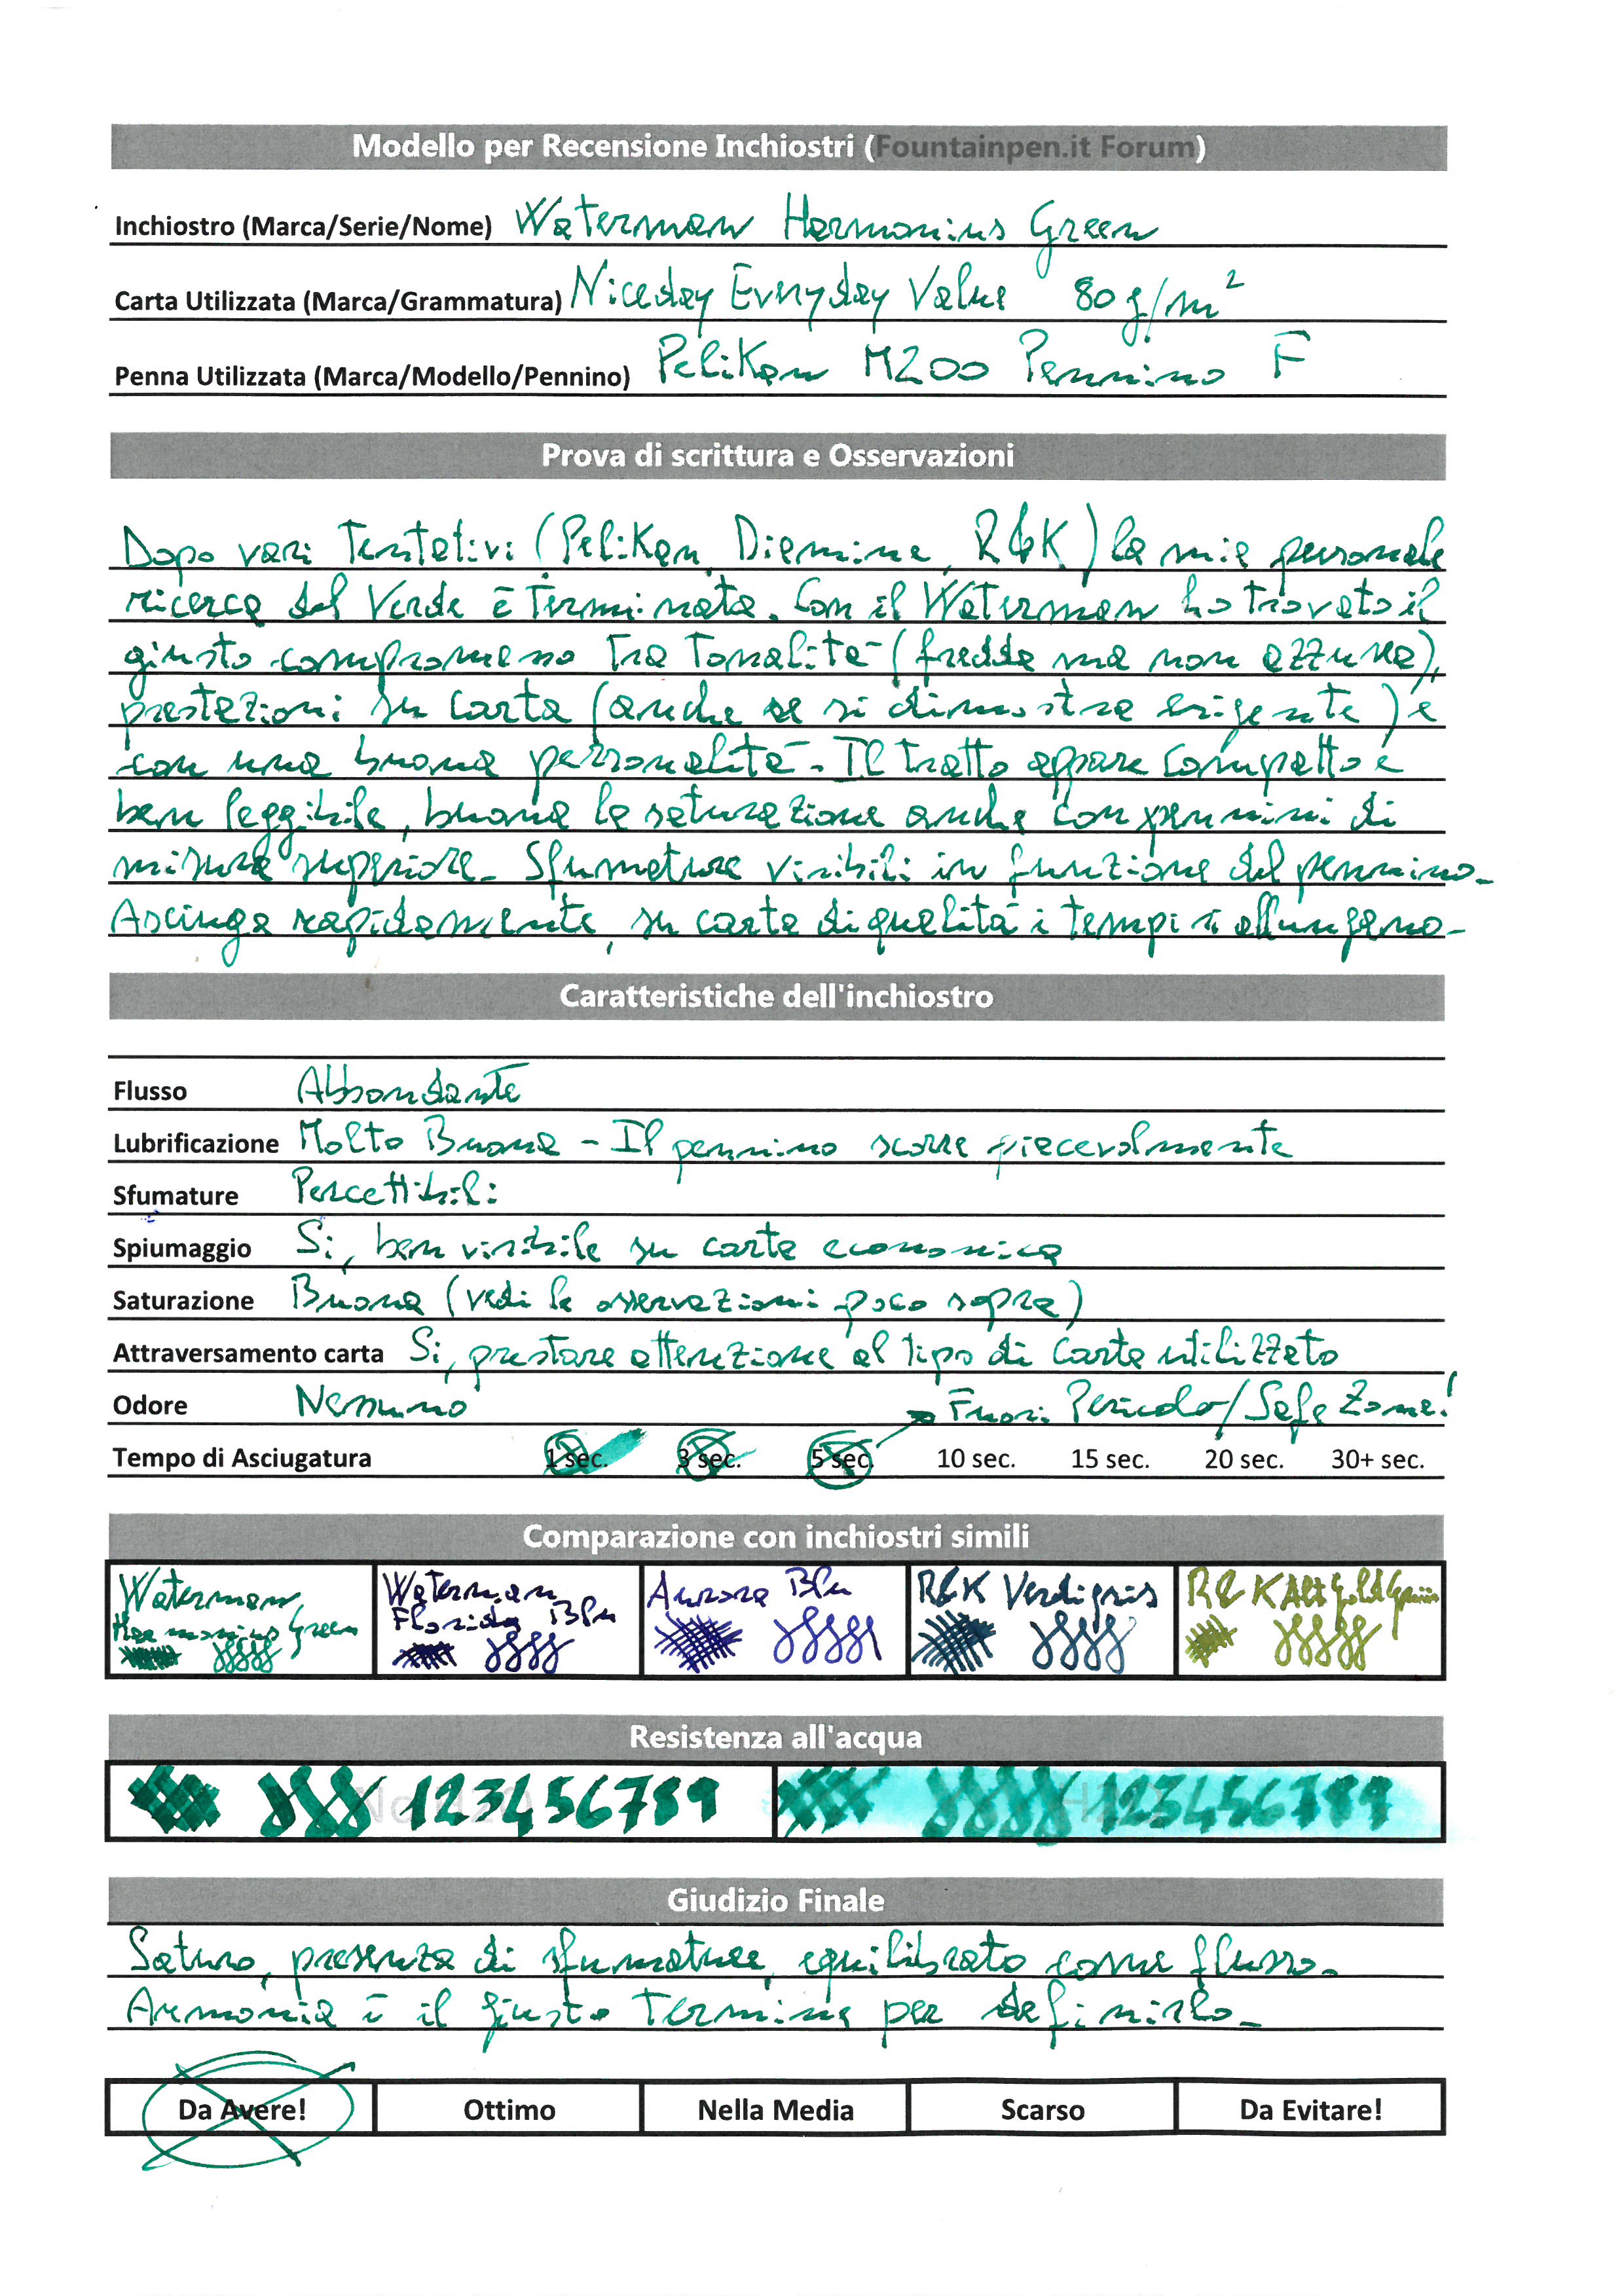 Modello per Recensione Inchiostri (Fountainpen.it Forum)
Inchiostro (Marca/Serie/Nome) Waterman Harmonius Green
Carta Utilizzata (Marca/Grammatura) Niceday Everyday Value 80 g/m²
Penna Utilizzata (Marca/Modello/Pennino) Pelikan M200 Pennino F
Prova di scrittura e Osservazioni
Dopo vari Tentativi (Pelikan, Diamine, R&K) la mia personale
ricerca del Verde è Terminata. Con il Waterman ho trovato il
giusto compromesso Tra Tonalità (fredda ma non azzurra),
prestazioni su carta (anche se si dimostra esigente) e
con una buona personalità. Il tratto appare compatto e
ben leggibile, buona la saturazione anche con pennini di
misura superiore. Sfumature visibili in funzione del pennino.
Asciuga rapidamente, su carta di qualità i tempi si allungano.
Caratteristiche dell'inchiostro
Flusso Abbondante
Lubrificazione Molto Buona - Il pennino scorre piacevolmente
Sfumature Percettibili
Spiumaggio Si, ben visibile su carta economica
Saturazione Buona (vedi le osservazioni poco sopra)
Attraversamento carta Si, prestare attenzione al tipo di carta utilizzato
Odore Nessuno Fuori Pericolo/Safe Zone!
Tempo di Asciugatura 1 sec. 3 sec. 5 sec. 10 sec. 15 sec. 20 sec. 30+ sec.
Comparazione con inchiostri simili
Waterman Harmonius Green
Waterman Florida Blu
Aurora Blu
R&K Verdigris
R&K Alt Goldgrün
Resistenza all'acqua
No H2O 123456789 H2O 123456789
Giudizio Finale
Saturo, presenza di sfumature, equilibrato come flusso.
Armonia è il giusto Termine per definirlo.
Da Avere! Ottimo Nella Media Scarso Da Evitare!